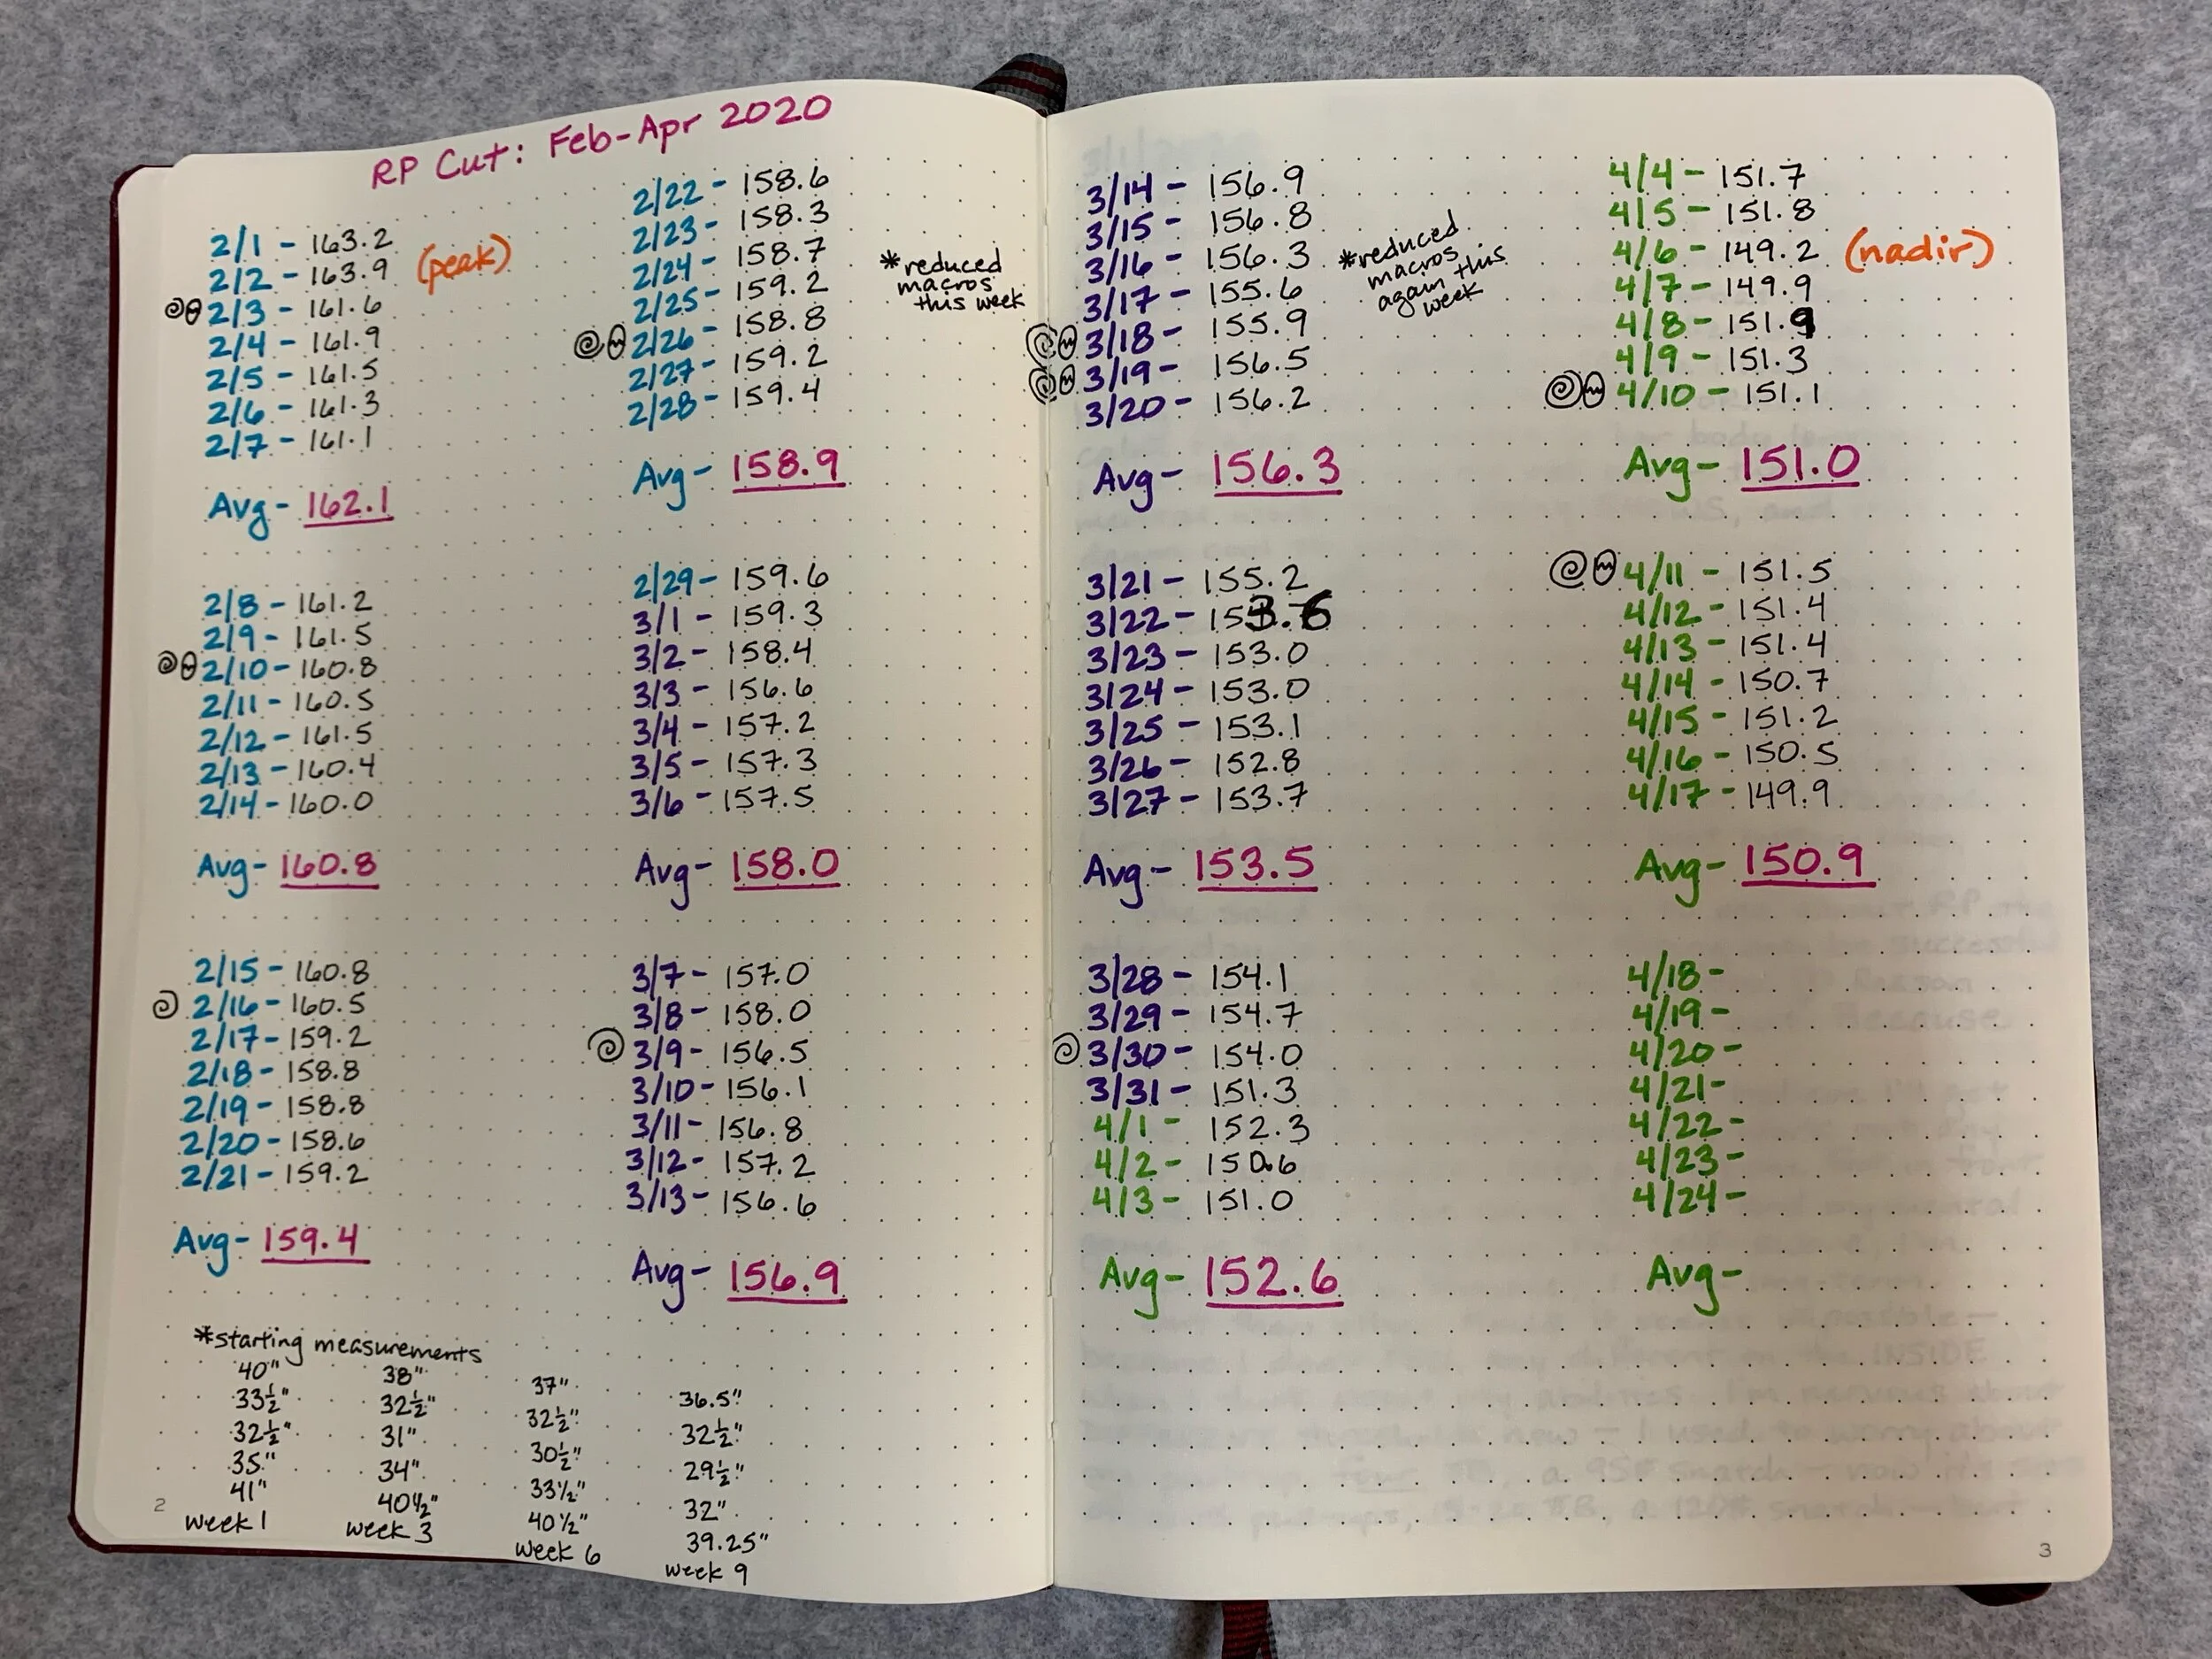 RP Cut: Feb-Apr 2020
2/1 - 163.2
2/2 - 163.9 (peak)
2/3 - 161.6
2/4 - 161.9
2/5 - 161.5
2/6 - 161.3
2/7 - 161.1
Avg - 162.1
2/8 - 161.2
2/9 - 161.5
2/10 - 160.8
2/11 - 160.5
2/12 - 161.5
2/13 - 160.4
2/14 - 160.0
Avg - 160.8
2/15 - 160.8
2/16 - 160.5
2/17 - 159.2
2/18 - 158.8
2/19 - 158.8
2/20 - 158.6
2/21 - 159.2
Avg - 159.4
2/22 - 158.6
2/23 - 158.3
2/24 - 158.7
2/25 - 159.2
2/26 - 158.8
2/27 - 159.2
2/28 - 159.4
*reduced
macros
this week
Avg - 158.9
2/29 - 159.6
3/1 - 159.3
3/2 - 158.4
3/3 - 156.6
3/4 - 157.2
3/5 - 157.3
3/6 - 157.5
Avg - 158.0
3/7 - 157.0
3/8 - 158.0
3/9 - 156.5
3/10 - 156.1
3/11 - 156.8
3/12 - 157.2
3/13 - 156.6
Avg - 156.9
*starting measurements
40"
33½"
32½"
35"
41"
week 1
38"
32½"
31"
34"
40½"
week 3
37"
32½"
30½"
33½"
40½"
week 6
36.5"
32½"
29½"
32"
39.25"
week 9
2
3/14 - 156.9
3/15 - 156.8
3/16 - 156.3
3/17 - 155.6
3/18 - 155.9
3/19 - 156.5
3/20 - 156.2
*reduced
macros
again this
week
Avg - 156.3
3/21 - 155.2
3/22 - 153.6
3/23 - 153.0
3/24 - 153.0
3/25 - 153.1
3/26 - 152.8
3/27 - 153.7
Avg - 153.5
3/28 - 154.1
3/29 - 154.7
3/30 - 154.0
3/31 - 151.3
4/1 - 152.3
4/2 - 150.6
4/3 - 151.0
Avg - 152.6
4/4 - 151.7
4/5 - 151.8
4/6 - 149.2 (nadir)
4/7 - 149.9
4/8 - 151.9
4/9 - 151.3
4/10 - 151.1
Avg - 151.0
4/11 - 151.5
4/12 - 151.4
4/13 - 151.4
4/14 - 150.7
4/15 - 151.2
4/16 - 150.5
4/17 - 149.9
Avg - 150.9
4/18 -
4/19 -
4/20 -
4/21 -
4/22 -
4/23 -
4/24 -
Avg -
3